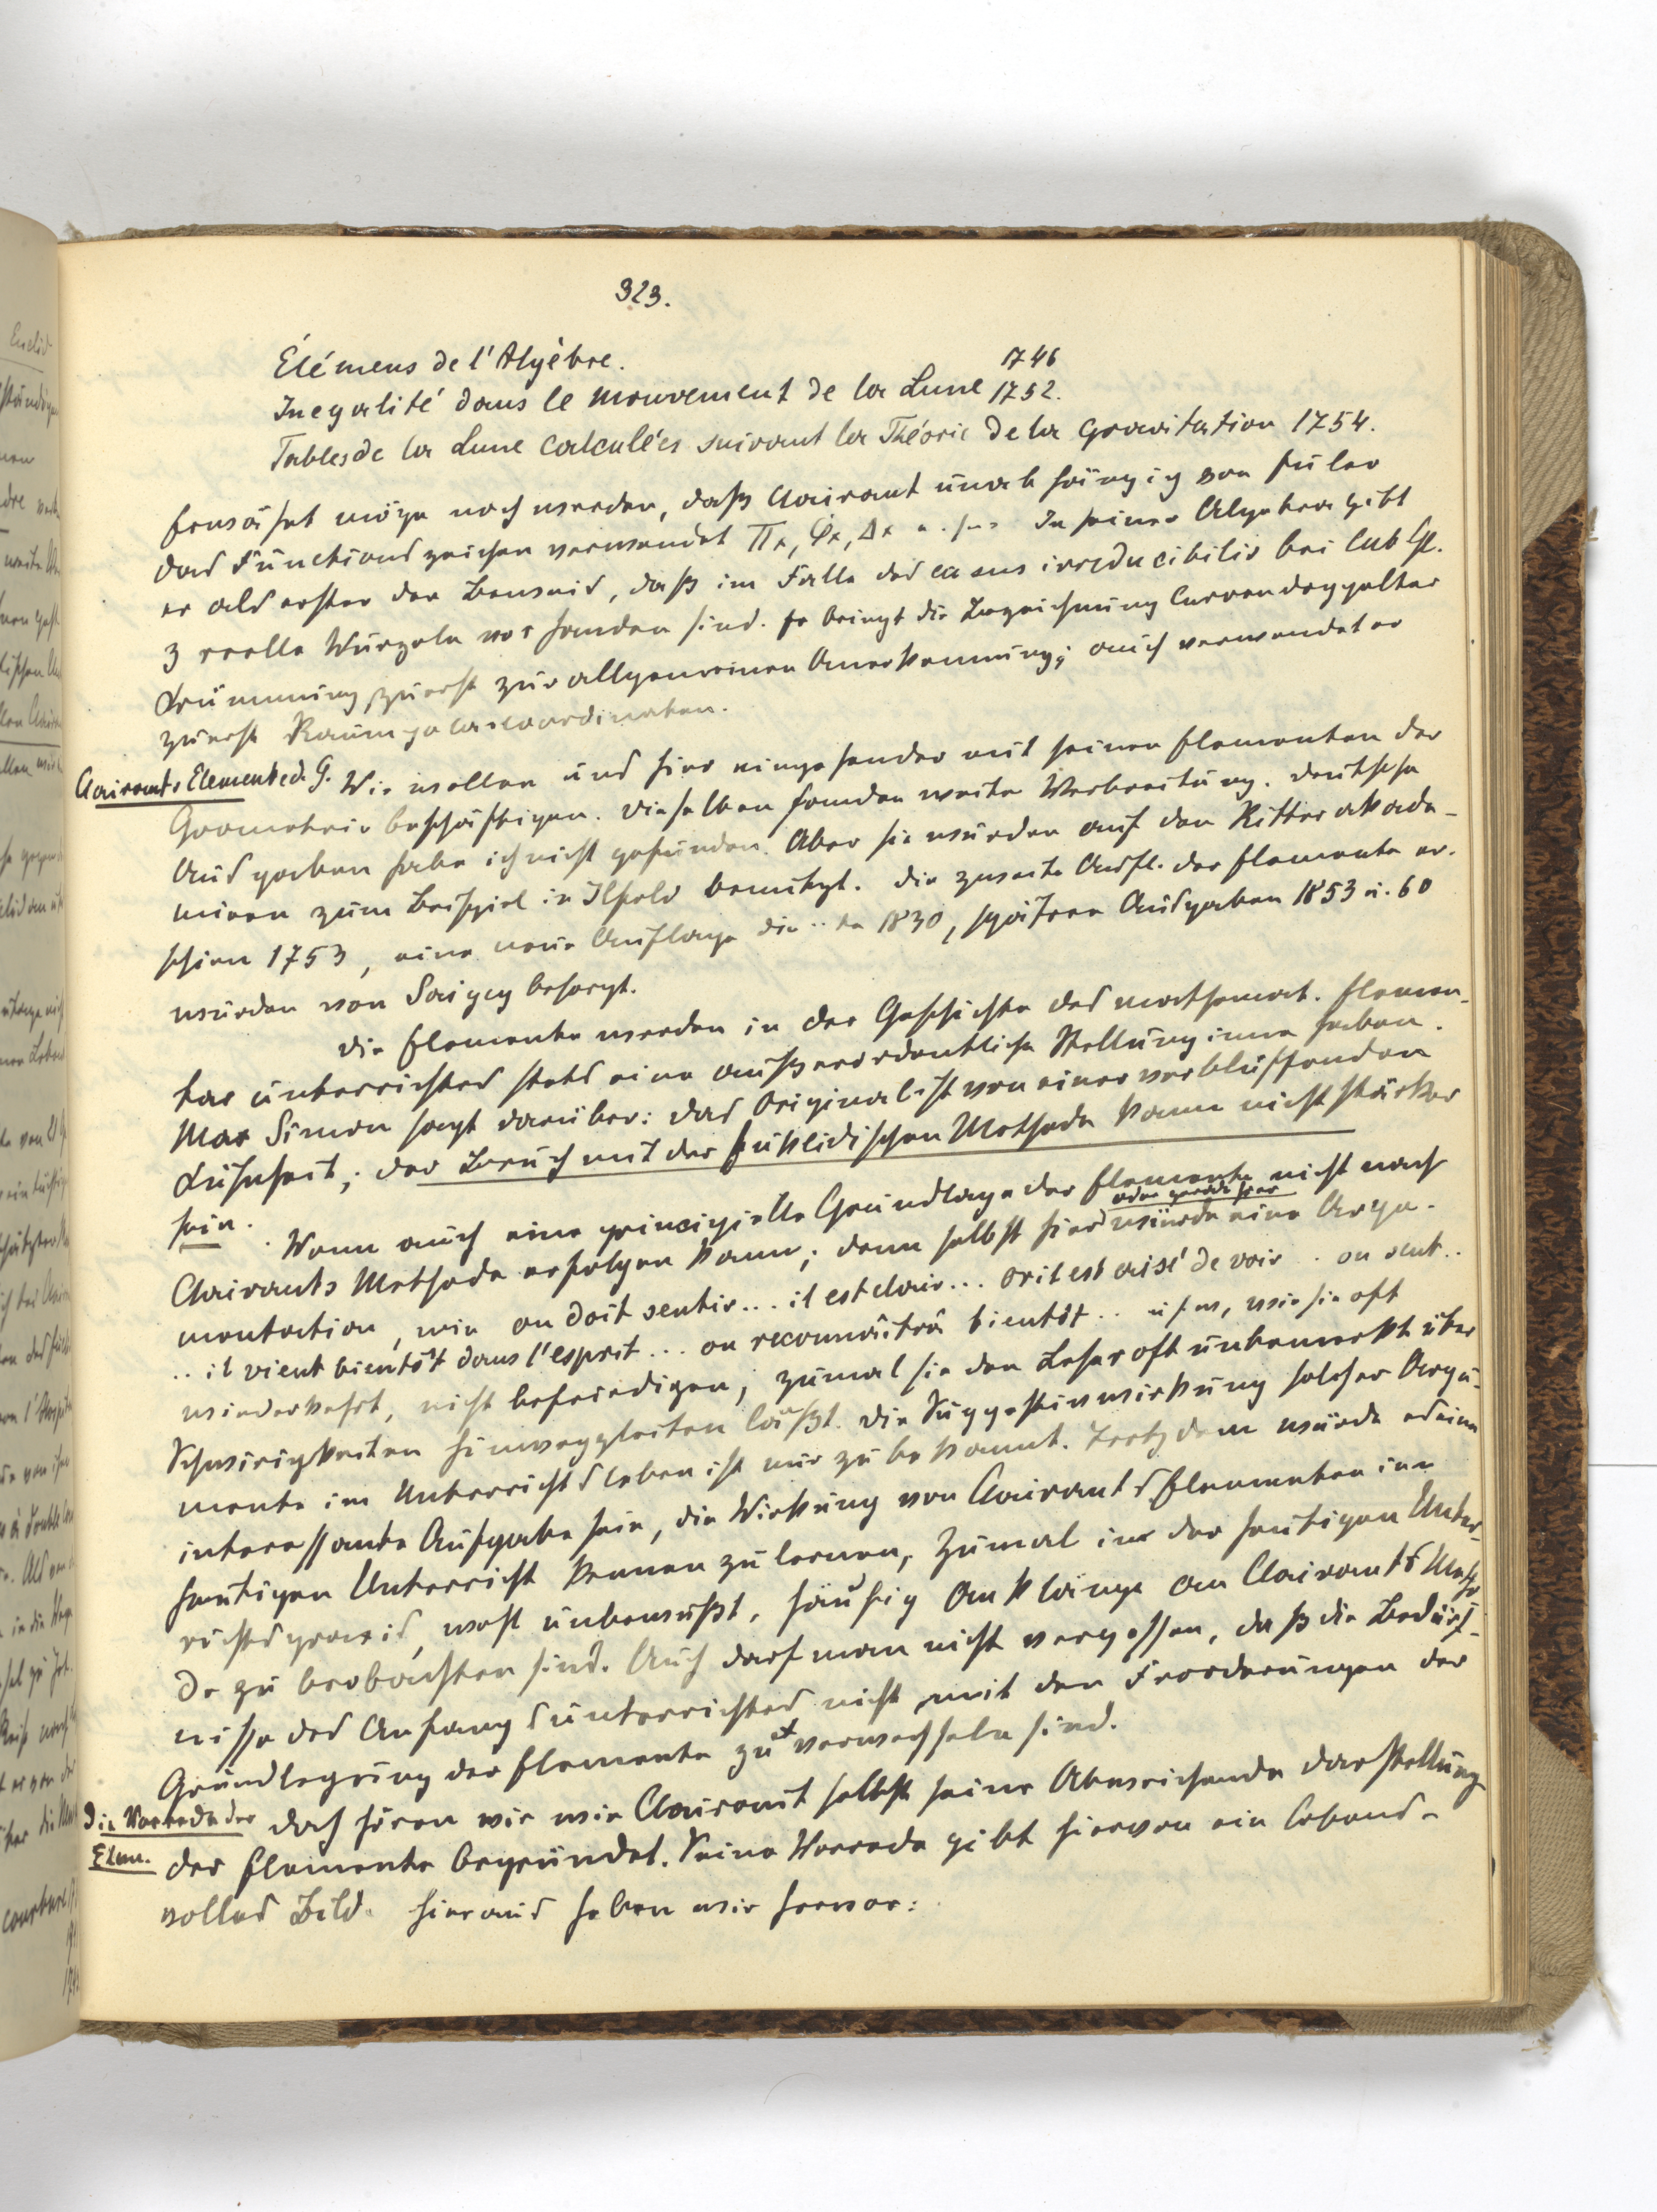 323.
Élémens de l'Algèbre. 1746
Inegalité dans le mouvement de la Lune 1752.
Tables de la Lune calculées suivant la Théorie de la Gravitation 1754.
Erwähnt möge noch werden, daß Clairaut unabhängig von Euler
das Functionszeichen verwendet Πx, Φx, Δx u.s.w. In seiner Algebra gibt
er als erster den Beweis, daß im Falle des casus irreducibilis bei Cub. Gl.
3 reelle Wurzeln vorhanden sind. Er bringt die Bezeichnung Curven doppelter
Krümmung zuerst zur allgemeinen Anerkennung; auch verwendet er
zuerst Raumpolarcoordinaten.
Clairauts Elemente d. G. Wir wollen uns hier eingehender mit seinen Elementen der
Geometrie beschäftigen. Dieselben fanden weite Verbreitung. Deutsche
Ausgaben habe ich nicht gefunden. Aber sie wurden auf den Ritterakade-
mieen zum Beispiel in Ilfeld benützt. Die zweite Aufl. der Elemente er-
schien 1753, eine neue Auflage die ..te 1830, spätere Ausgaben 1853 u. 60
wurden von Saigey besorgt.
Die Elemente werden in der Geschichte des mathemat. Elemen-
tarunterrichtes stets eine außerordentliche Stellung inne haben.
Max Simon sagt darüber: Das Original ist von einer verblüffenden
Kühnheit; der Bruch mit der Euklidischen Methode kann nicht stärker
sein. Wenn auch eine principielle Grundlage der Elemente nicht nach
Clairauts Methode erfolgen kann; denn selbst hier oder gerade hier würde eine Argu-
mentation, wie on doit sentir... il est clair... or il est aisé de voir .. on sent..
.. il vient bientôt dans l'esprit... on reconnaîtra bientôt .. usw, wie sie oft
wiederkehrt, nicht befriedigen, zumal sie den Leser oft unbemerkt über
Schwierigkeiten hinweggleiten läßt. Die Suggestivwirkung solcher Argu-
mente im Unterrichtsleben ist nur zu bekannt. Trotzdem würde es eine
interessante Aufgabe sein, die Wirkung von Clairauts Elementen im
heutigen Unterricht kennen zu lernen, zumal in der heutigen Unter-
richtspraxis, wohl unbewußt, häufig Anklänge an Clairauts Metho-
de zu beobachten sind. Auch darf man nicht vergessen, daß die Bedürf-
nisse des Anfangsunterrichtes nicht mit den Frorderungen der
Grundlegung der Elemente zu verwechseln sind.
Die Vorrede der Elem. Doch hören wir wie Clairaut selbst seine Abweichende Darstellung
der Elemente begründet. Seine Vorrede gibt hiervon ein lebens-
volles Bild. Hieraus heben wir hervor: